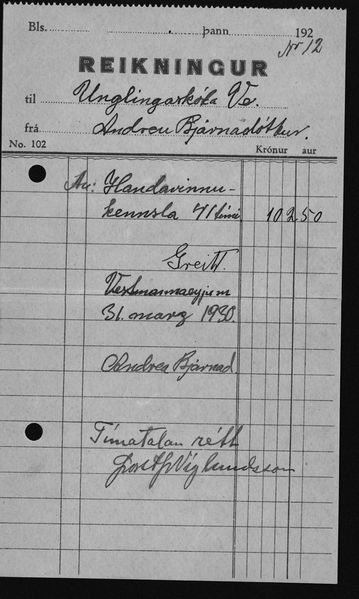 Bls. þann 192
Nr 12
REIKNINGUR
til Unglingaskóla Ve.
frá Andreu Bjarnadóttur.
No. 102 Krónur aur
An: Handavinnu-
kennsla 41 tími 102 50
Greitt.
Vestmannaeyjum
31. marz 1930.
Andrea Bjarnad.
Tímatalan rétt
Þorst. Þ. Víglundsson